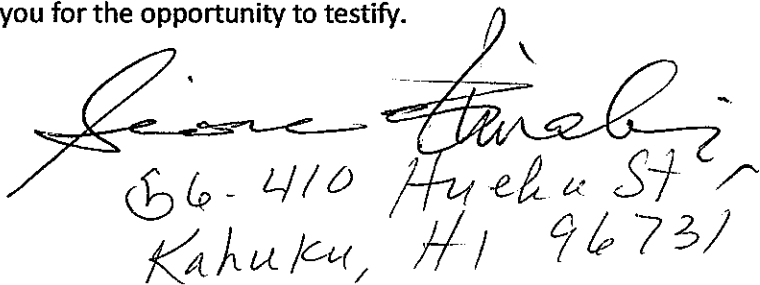 you for the opportunity to testify.
56-410 Huehu St
Kahuku, HI 96731